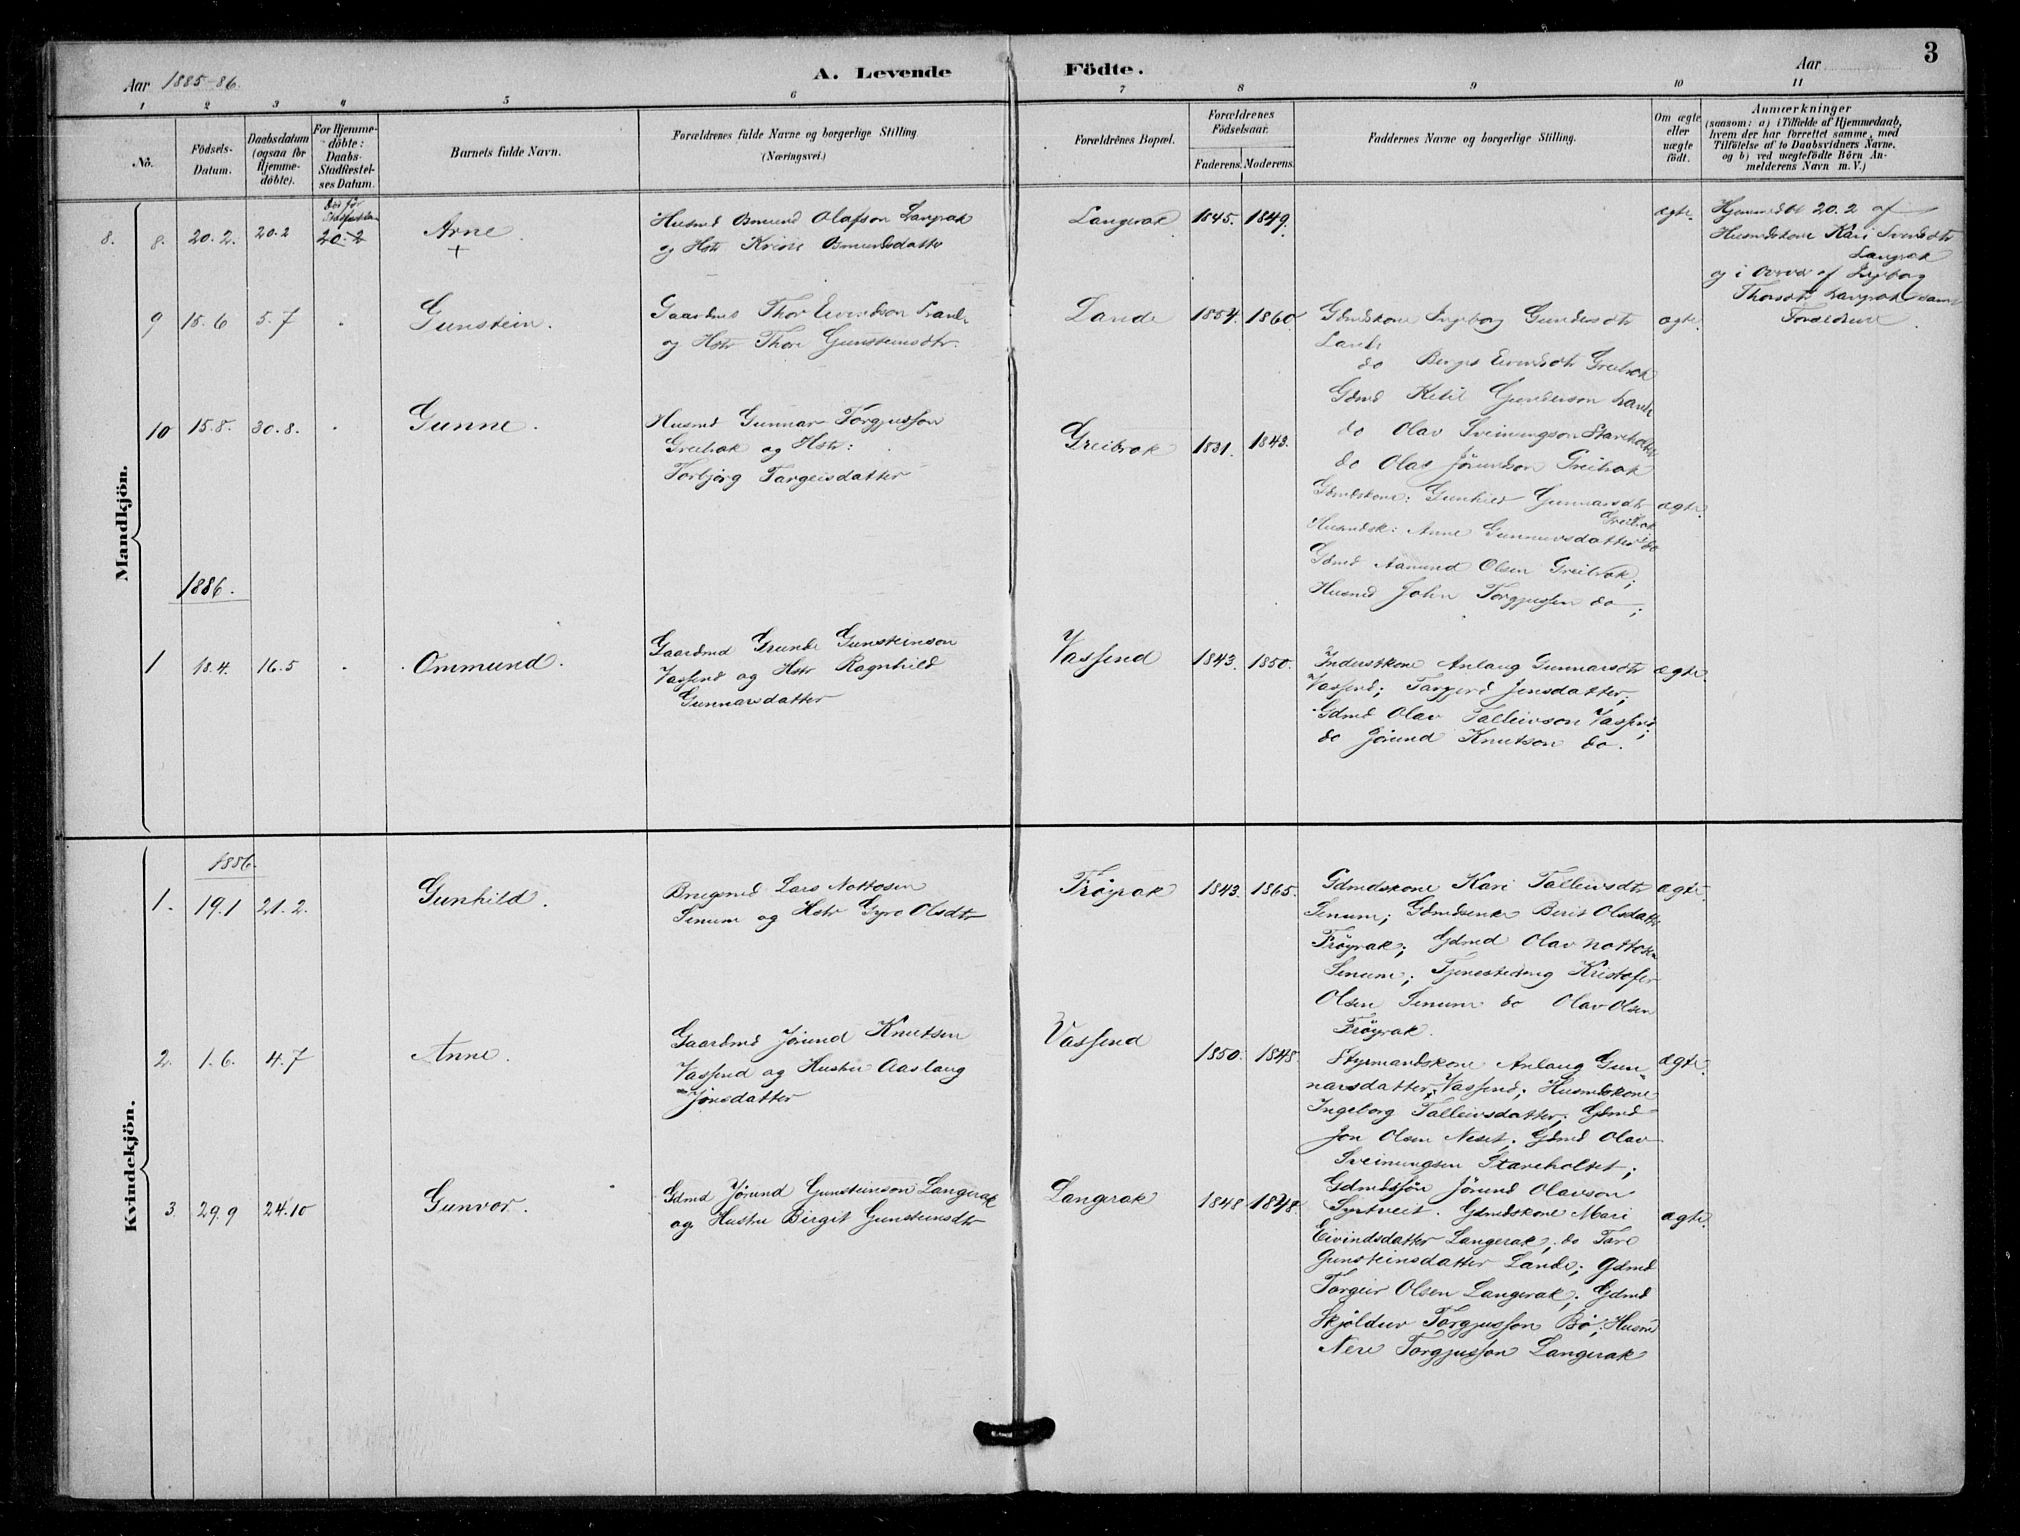 3
Aar 1885-86.
A. Levende Födte.
Aar
1 2 3 4 5 6 7 8 9 10 11
No.
Födsels-Datum.
Daabsdatum (ogsaa for Hjemme-döbte).
For Hjemme-döbte: Daabs-Stadfæstel-ses Datum.
Barnets fulde Navn.
Forældrenes fulde Navne og borgerlige Stilling. (Næringsvei.)
Forældrenes Bopæl.
Forældrenes Födselsaar.
Faderens. Moderens.
Faddernes Navne og borgerlige Stilling.
Om ægte eller uægte födt.
Anmærkninger
(saasom: a) i Tilfælde af Hjemmedaab, hvem der har forrettet samme, med Tilföielse af to Daabsvidners Navne, og b) ved uægtefödte Börn An-melderens Navn m. V.)
Mandkjön.
8. 8. 20.2. 20.2 død før 20.2 Arne +
Husmd Omund Olafson Langrak
og Hstr Kristi Omundsdatter
Langerak 1845. 1849. ægte.
Hjemmedbt 20.2 af
Husmdskone Kari Svensdtr
Langrak
og i Overvær af
Thorsdtr Langrak samt
Forældrene.
9 15.6 5.7 Gunstein.
Gaardms Thor Eivindson Lande
og Hstr Thore Gunsteinsdtr.
Lande 1854. 1860
Gdmdskone Ingeborg Gundersdtr
Lande
do Berget Eivindsdtr Greibrok
Gdmd Ketil Gunderson Lande
do Olav Sveinungson Stareholtet
do Olav Jörundson Greibrok
ægte.
10 15.8. 30.8. Gunne.
Husmd Gunnar Torgjusson
Greibrok og Hstr:
Torbjørg Targeisdatter
Greibrok 1831. 1843.
Gdmdskone: Gunhild Gunnarsdtr
Greibrok
Husmdsk: Anne Gunnarsdatter do
Gdmd Aamund Olsen Greibrok;
Husmd John Torgjussen do;
ægte.
1886.
1 18.4. 16.5 Ommund.
Gaardmd Grunde Gunsteinson
Vassend og Hstr Ragnhild
Gunnarsdatter
Vassend 1843. 1850.
Inderstkone Anlaug Gunnarsdtr
Vassend; Targjerd Jonsdatter;
Gdmd Olav Talleivson Vassend;
do Jørund Knutson do.
ægte.
Kvindekjön.
1886.
1. 19.1 21.2. Gunhild.
Brugsmd Lars Nottosen
Senum og Hstr Gyro Olsdtr
Frøyrak 1843. 1865.
Gdmdskone Kari Talleivsdtr
Senum; Gdmdsenke Berit Olsdatter
Frøyrak; Gdmd Olav Nottosen
Senum; Tjenestedreng Kristofer
Olsen Senum do Olav Olsen
Frøyrak.
ægte.
2. 1.6. 4.7 Anne.
Gaardmd Jørund Knutsen
Vassend og Hustru Aaslaug
Jonsdatter
Vassend 1850. 1848.
Styrmandskone Anlaug Gun-
narsdatter, Vassend; Husmdskone
Ingeborg Talleivsdatter; Gdmd
Jon Olsen Neset; Gdmd Olav
Sveinungsen Stareholtet;
Gdmdssøn Jørund Olavson
Syrtveit.
ægte.
3. 29.9 24.10 Gunvor.
Gdmd Jørund Gunsteinson Langerak
og Hustru Birgit Gunsteinsdtr
Langerak 1848 1848.
Gdmdskone Mari
Eivindsdatter Langerak; do Tare
Gunsteinsdatter Lande; Gdmd
Torgeir Olsen Langerak; Gdmd
Skjöldulv Torgjusson Bö; Husmd
Nere Torgjusson Langerak
ægte.